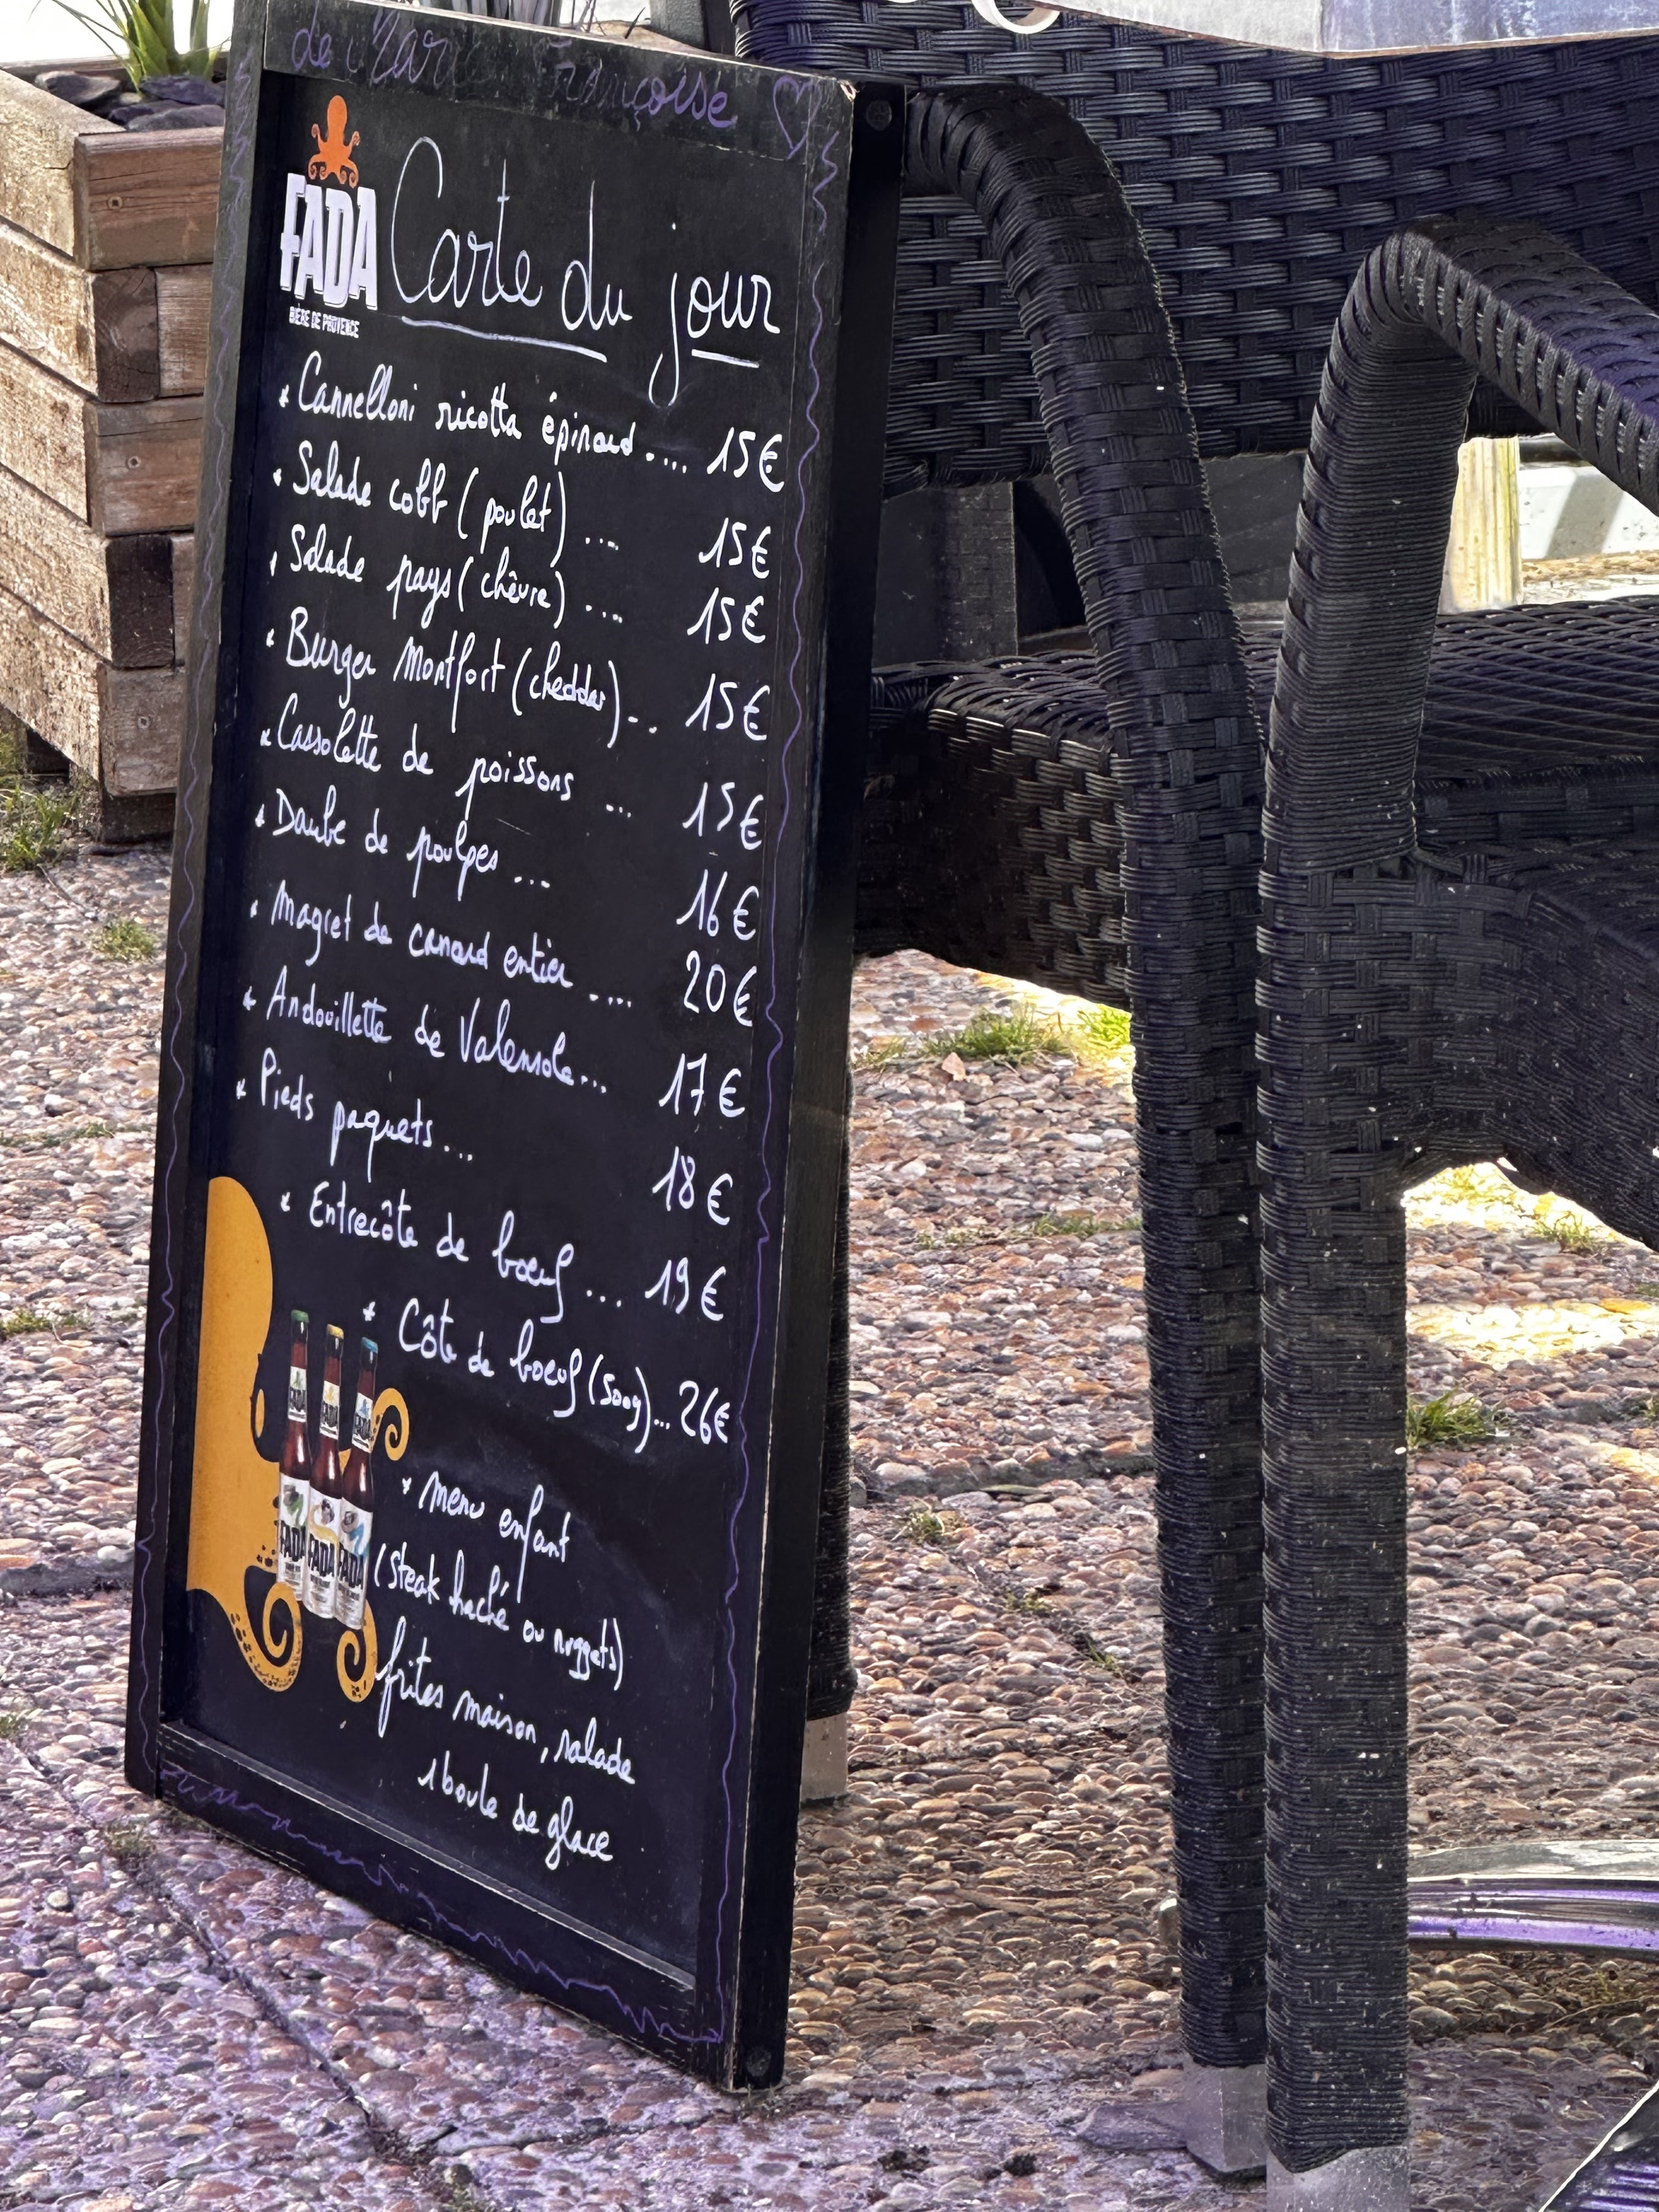 de Marie Françoise
FADA
BIÈRE DE PROVENCE
Carte du jour
* Cannelloni ricotta épinard .... 15€
* Salade cobb (poulet) ... 15€
* Salade pays (chèvre) .... 15€
* Burger Montfort (cheddar) .. 15€
* Cassolette de poissons ... 15€
* Daube de poulpes ... 16€
* Magret de canard entier .... 20€
* Andouillette de Valensole... 17€
* Pieds paquets... 18€
* Entrecôte de boeuf ... 19€
* Côte de boeuf (500g)... 26€
* Menu enfant
(steak haché ou nuggets)
frites maison, salade
1 boule de glace
FADA FADA FADA